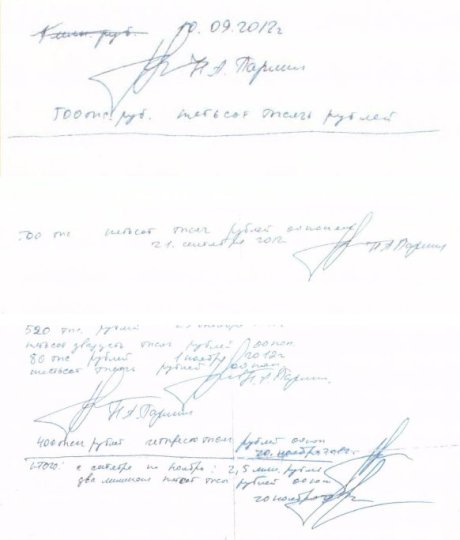 руб. 10.09.2012г
Н А. Паршин
500 тыс. руб. пятьсот тысяч рублей
500 тыс пятьсот тысяч рублей 00 копеек
21. сентября 2012
Н А Паршин
520 тыс. рублей
пятьсот двадцать тысяч рублей 00 коп
80 тыс рублей 1 ноября 2012г
тысяч рублей 00 коп
Н А. Паршин.
Н.А. Паршин
400 тысяч рублей четыреста тысяч рублей 00 коп
20. ноября 2012г
Итого: с сентября по ноябрь: 2,5 млн. рублей
два миллиона пятьсот тысяч рублей 00 коп
20 ноября